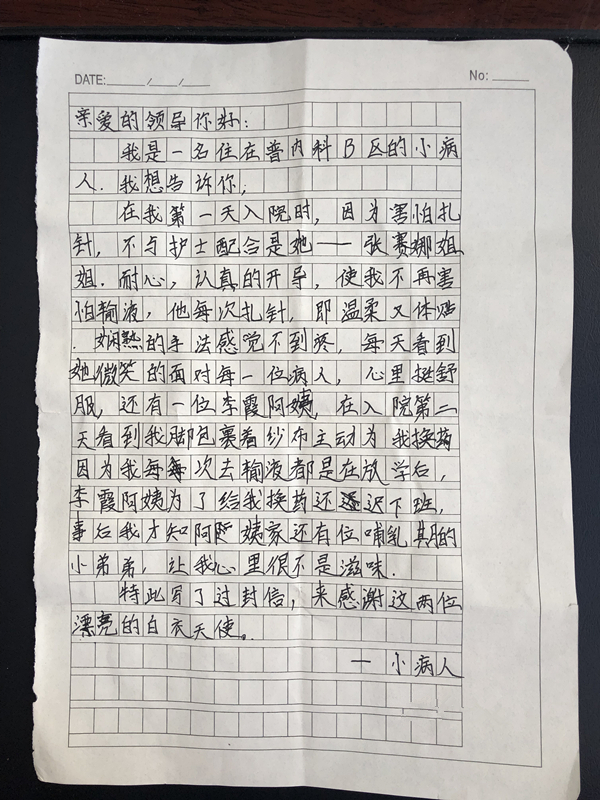 DATE:____/____/____
No:_____
亲爱的领导你好:
我是一名住在普内科B区的小病
人.我想告诉你,
在我第一天入院时,因为害怕扎
针,不与护士配合是她——张赛娜姐
姐.耐心,认真的开导,使我不再害
怕输液,他每次扎针,即温柔又体贴
.娴熟的手法感觉不到疼,每天看到
她微笑的面对每一位病人,心里挺舒
服,还有一位李霞阿姨,在入院第二
天看到我脚包裹着纱布主动为我换药
因为我每次去输液都是在放学后,
李霞阿姨为了给我换药还迟下班,
事后我才知阿姨家还有位哺乳期的
小弟弟,让我心里很不是滋味.
特此写了过封信,来感谢这两位
漂亮的白衣天使。
一小病人